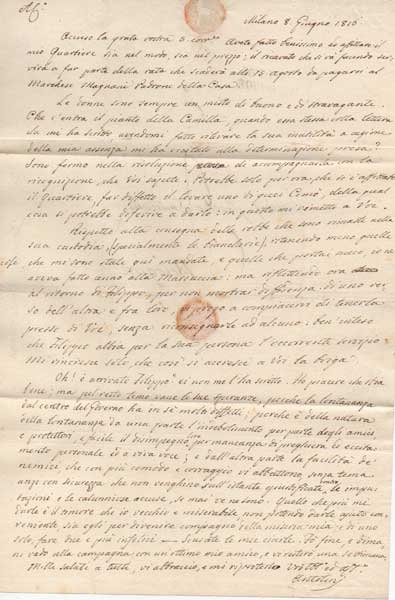 Af.º
Milano 8. Giugno 1810
Accuso la grata vostra 3. corr.e Avete fatto benissimo ad affittare il
mio Quartiere sia nel modo, sia nel prezzo: il ricavato che si va facendo ser-
virà a far parte della rata che scaderà alli 15 agosto da pagarsi al
Marchese Magnani Padrone della Casa
Le donne sono sempre un misto di buono e di stravagante.
Che c'entra il pianto della Camilla, quando essa stessa colla lettera
da mi ha scritto avendomi fatto rilevare la sua inutilità a cagione
della mia assenza mi ha eccitato alla determinazione presa?
Sono fermo nella risoluzione di accompagnarla con la
ricognizione, che Voi sapete. Potrebbe solo per ora, che si è affittato
il Quartiere, far difetto il levare uno di quei Comò, della qual
cosa si potrebbe differire a darlo: in questo mi rimetto a Voi.
Rispetto alla consegna delle robbe che sono rimaste nella
sua custodia (specialmente le biancherie) stanendo meno quelle
che me sono state qui mandate, e quelle che portai meco, io ne
aveva fatto cenno alla Mariuccia: ma riflettendo ora
al ritorno di Filippo, per non mostrar diffidenza di uno ver-
so dell'altra e fra loro, vi prego a compiacervi di tenerle
presso di Voi, senza riconsegnarle ad alcuno: ben inteso
che Filippo abbia per la sua persona l'occorrente servizio.
Mi rincresce solo che così si accresce a Voi la briga.
Oh! è arrivato Filippo? ei non me l'ha scritto. Ho piacere che stia
bene; ma pel resto temo vane le sue speranze, perchè la lontananza
dal centro del Governo ha in sè molti difetti; perchè è della natura
della lontananza da una parte l'indebolimento per parte degli amici
e protettori, è facile il disimpegno per mancanza di preghiera ed eccita-
mento personale ed a viva voce; e dall'altra parte la facilità de'
nemici che con più comodo e coraggio vi abbattono, senza tema
anzi con sicurezza che non venghino sull'istante giustificate le impu-
tazioni e le calunniose accuse, se mai ve ne sono. Quello che più mi
duole è il timore che io vecchio e miserabile non potendo darle ajuto con-
veniente sia egli per divenire compagno della miseria mia: e di uno
solo, fare due e più infelici — Scusate le mie ciarle. Di fine, e dima-
ni vado alla campagna con un ottimo mio amico, e vi resterò una settimana.
Mille saluti a tutti, vi abbraccio, e mi riprotesto
Antolini